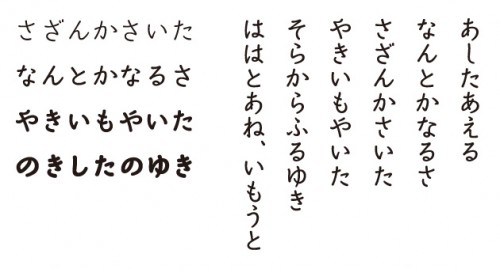 さざんかさいた
なんとかなるさ
やきいもやいた
のきしたのゆき
あしたあえる
なんとかなるさ
さざんかさいた
やきいもやいた
そらからふるゆき
ははとあね、いもうと